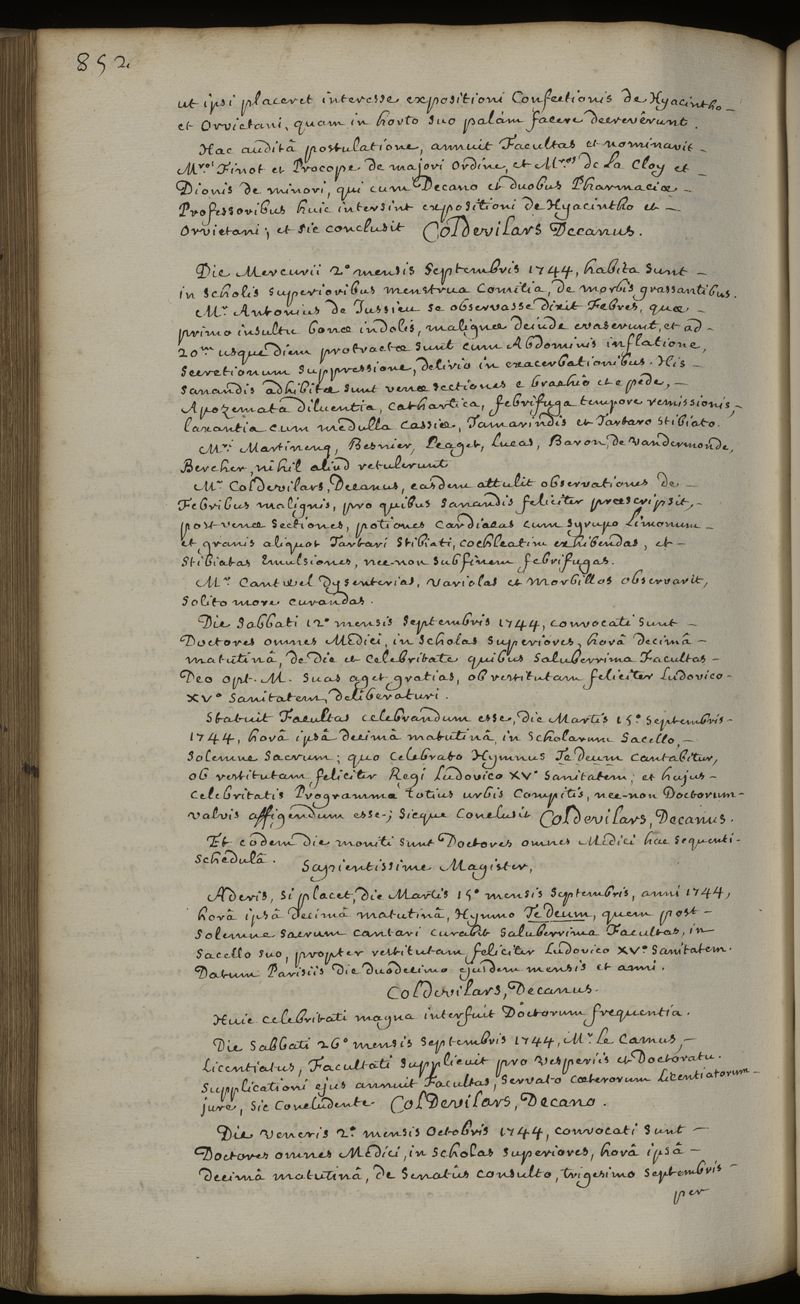 852.
ut ipsi placeret interesse expositioni Confectionis de Hyacintho –
et Orvietani, quam in horto suo palàm facere decrevêrunt.
Hac auditâ postulatione, annuit Facultas et nominavit –
M.ros Finot et Procope de majori Ordine, et M.ros de La Cloy et –
Dionis de minori, qui cum Decano et duobus Pharmaciæ –
Professoribus huic intersint expositioni de Hyacintho et –
Orvietani; et sic conclusit ColDevilars Decanus.
Die Mercurii 2.ª mensis Septembris 1744, habita sunt –
in Scholis superioribus menstrua Comitia, de morbis grassantibus.
M.r Antonius de Jussieu se observasse dixit Febres, quæ –
primo insultu bonæ indolis, malignæ deinde evaserunt, et ad –
20.um usque diem protractæ sunt cum Abdominis inflatione,
Secretionum suppressione, delirio in exacerbationibus. His –
sanandis adhibitæ sunt venæ sectiones e brachio et e pede, –
Apozemata diluentia, cathartica, febrifuga tempore remissionis, –
laxantia cum medulla cassiæ, Tamarindis et Tartaro stibiato.
M.ri Martinenq, Besnier, Peaget, Lucas, Baron, de Vandermonde,
Bercher, nihil aliud retulerunt
M.r ColDevilars, Decanus, easdem attulit observationes de –
Febribus malignis, pro quibus sanandis feliciter præscripsit, –
post venæ sectiones, potiones cardiacas cum syrupo Limonum –
et granis aliquot Tartari stibiati, cochleatim exhibendas, et –
stibiatas Emulsiones, nec-non sub finem febrifugas.
M.r Cantwel Dysenterias, variolas et morbillos observavit,
solito more curandas.
Die Sabbati 12.ª mensis Septembris 1744, convocati sunt –
Doctores omnes Medici, in Scholas superiores, horâ decimâ –
matutinâ, de die et celebritate quibus Saluberrima Facultas –
Deo opt. M. suas aget gratias, ob restitutam feliciter Ludovico –
XV.º Sanitatem, deliberaturi.
Statuit Facultas celebrandum esse, die Martis 15.ª Septembris –
1744, horâ ipsâ decimâ matutinâ, in Scholarum Sacello, –
solemne sacrum; quo celebrato Hymnus Te Deum cantabitur,
ob restitutam feliciter Regi Ludovico XV.º Sanitatem; et hujus –
celebritatis Programma totius urbis Compitis, nec-non Doctorum –
valvis affigendum esse; sicque conclusit ColDevilars, Decanus.
Et eodem die moniti sunt Doctores omnes Medici hac sequenti –
schedulâ.
Sapientissime Magister,
Aderis, si placet, die Martis 15.ª mensis Septembris, anni 1744,
horâ ipsâ decimâ matutinâ, Hymno Te Deum, quem post –
solemne sacrum cantari curabit Saluberrima Facultas, in
Sacello suo, propter restitutam feliciter Ludovico XV.º Sanitatem.
Datum Parisiis die duodecimo ejusdem mensis et anni.
ColDevilars, Decanus.
Huic celebritati magna interfuit Doctorum frequentia.
Die Sabbati 26.ª mensis Septembris 1744, M.r Le Camus, –
Licentiatus, Facultati supplicuit pro Vesperiis et Doctoratu.
Supplicationi ejus annuit Facultas, servato cæterorum Licentiatorum –
jure, sic concludente ColDevilars, Decano.
Die Veneris 2.ª mensis Octobris 1744, convocati sunt –
Doctores omnes Medici, in Scholas superiores, horâ ipsâ –
decimâ matutinâ, de Senatûs consulto, trigesimo Septembris –
per